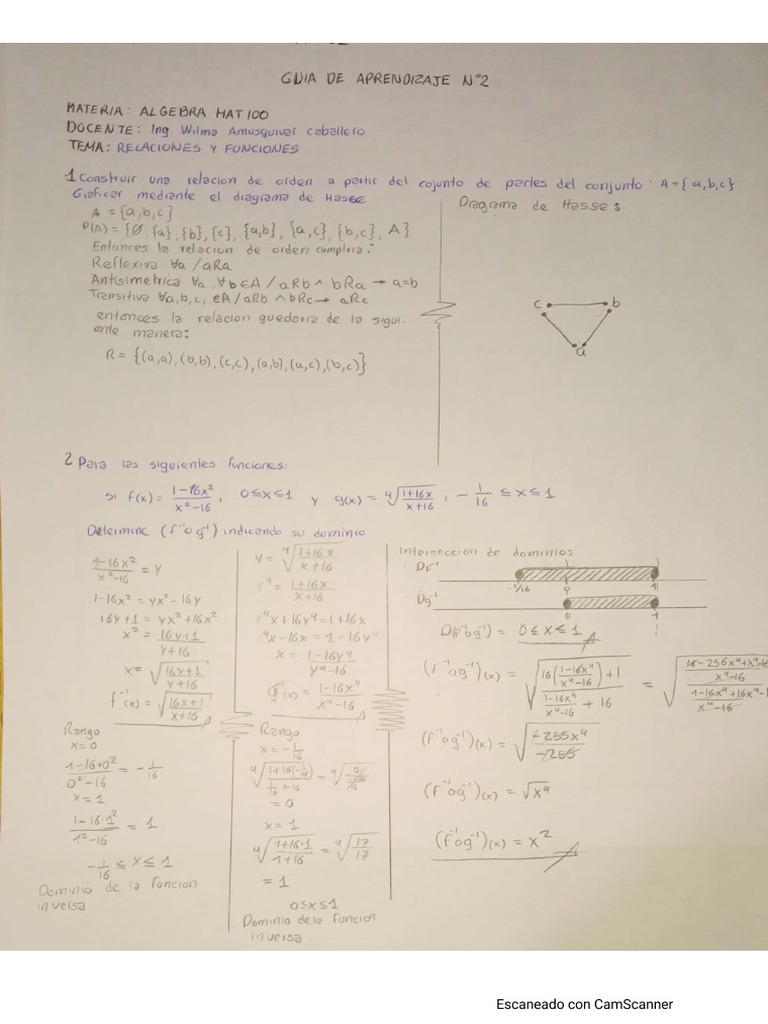 GUIA DE APRENDIZAJE N°2
MATERIA: ALGEBRA MAT100
DOCENTE: Ing. Wilma Amusquivar caballero
TEMA: RELACIONES Y FUNCIONES
1 Construir una relacion de orden a partir del cojunto de partes del conjunto: A={a,b,c}
Graficar mediante el diagrama de Hasse
Diagrama de Hasse:
A = {a,b,c}
P(A) = {Ø, {a}, {b}, {c}, {a,b}, {a,c}, {b,c}, A}
Entonces la relacion de orden cumpliria:
Reflexiva ∀a / aRa
Antisimetrica ∀a, ∀b∈A / aRb ∧ bRa → a=b
Transitiva ∀a,b,c, ∈A / aRb ∧ bRc → aRc
entonces la relacion quedaria de la sigui-
ente manera:
R = {(a,a),(b,b),(c,c),(a,b),(a,c),(b,c)}
c b
a
2 Para las siguientes funciones:
si f(x) = (1-16x²)/(x²-16), 0≤x≤1 y g(x) = ⁴√((1+16x)/(x+16)), -1/16 ≤ x ≤ 1
Determine (f⁻¹og⁻¹) indicando su dominio
(1-16x²)/(x²-16) = y
1-16x² = yx²-16y
16y+1 = yx²+16x²
x² = (16y+1)/(y+16)
x = √((16y+1)/(y+16))
f⁻¹(x) = √((16x+1)/(x+16))
Rango
x=0
(1-16·0²)/(0²-16) = -1/16
x=1
(1-16·1²)/(1²-16) = 1
-1/16 ≤ x ≤ 1
Dominio de la funcion
inversa
y = ⁴√((1+16x)/(x+16))
y⁴ = (1+16x)/(x+16)
y⁴x+16y⁴=1+16x
y⁴x-16x=1-16y⁴
x = (1-16y⁴)/(y⁴-16)
g⁻¹(x) = (1-16x⁴)/(x⁴-16)
Rango
x = -1/16
= 0
x = 1
⁴√((1+16·1)/(1+16)) = ⁴√(17/17)
= 1
0≤x≤1
Dominio de la funcion
inversa
Interseccion de dominios
Df⁻¹
-1/16 0 1
Dg⁻¹
0 1
D(f⁻¹og⁻¹) = 0≤x≤1
(f⁻¹og⁻¹)(x) = √((16((1-16x⁴)/(x⁴-16))+1)/((1-16x⁴)/(x⁴-16)+16)) = √(((16-256x⁴+x⁴-16)/(x⁴-16))/((1-16x⁴+16x⁴-
(f⁻¹og⁻¹)(x) = √(-255x⁴/-255)
(f⁻¹og⁻¹)(x) = √x⁴
(f⁻¹og⁻¹)(x) = x²
Escaneado con CamScanner